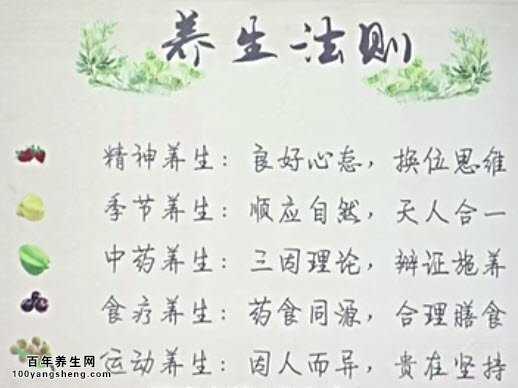 养生法则
精神养生：良好心态，换位思维
季节养生：顺应自然，天人合一
中药养生：三因理论，辨证施养
食疗养生：药食同源，合理膳食
运动养生：因人而异，贵在坚持
百年养生网
100yangsheng.com